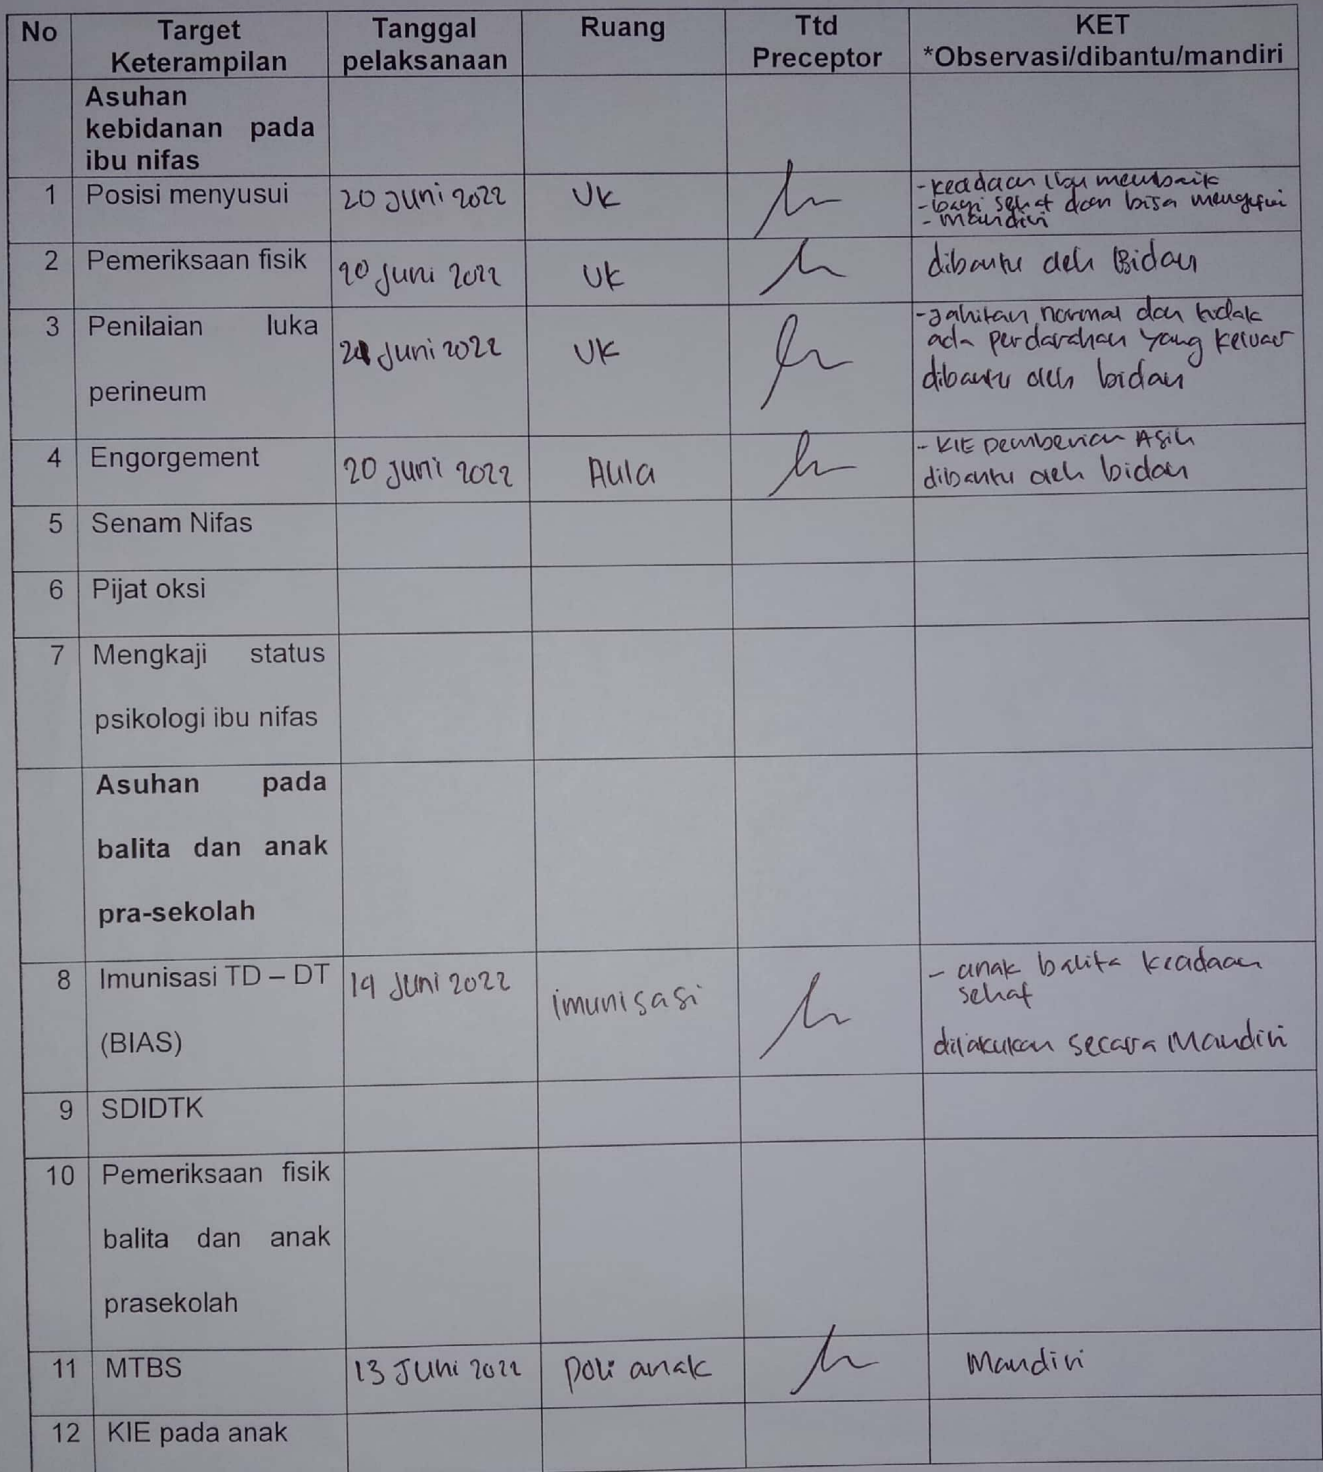 No Target Keterampilan Tanggal pelaksanaan Ruang Ttd Preceptor KET *Observasi/dibantu/mandiri
Asuhan
kebidanan pada
ibu nifas
1 Posisi menyusui 20 Juni 2022 UK - keadaan ibu membaik
- bayi sehat dan bisa
- mandiri
2 Pemeriksaan fisik 20 Juni 2022 UK dibantu oleh Bidan
3 Penilaian luka Juni 2022 UK - Jahitan normal dan tidak
ada perdarahan yang keluar
perineum dibantu oleh bidan
4 Engorgement 20 Juni 2022 Aula - KIE pemberian Asih
dibantu oleh bidan
5 Senam Nifas
6 Pijat oksi
7 Mengkaji status
psikologi ibu nifas
Asuhan pada
balita dan anak
pra-sekolah
8 Imunisasi TD – DT 19 Juni 2022 imunisasi - anak balita keadaan
sehat
(BIAS) dilakukan secara Mandiri
9 SDIDTK
10 Pemeriksaan fisik
balita dan anak
prasekolah
11 MTBS 13 Juni 2022 poli anak Mandiri
12 KIE pada anak